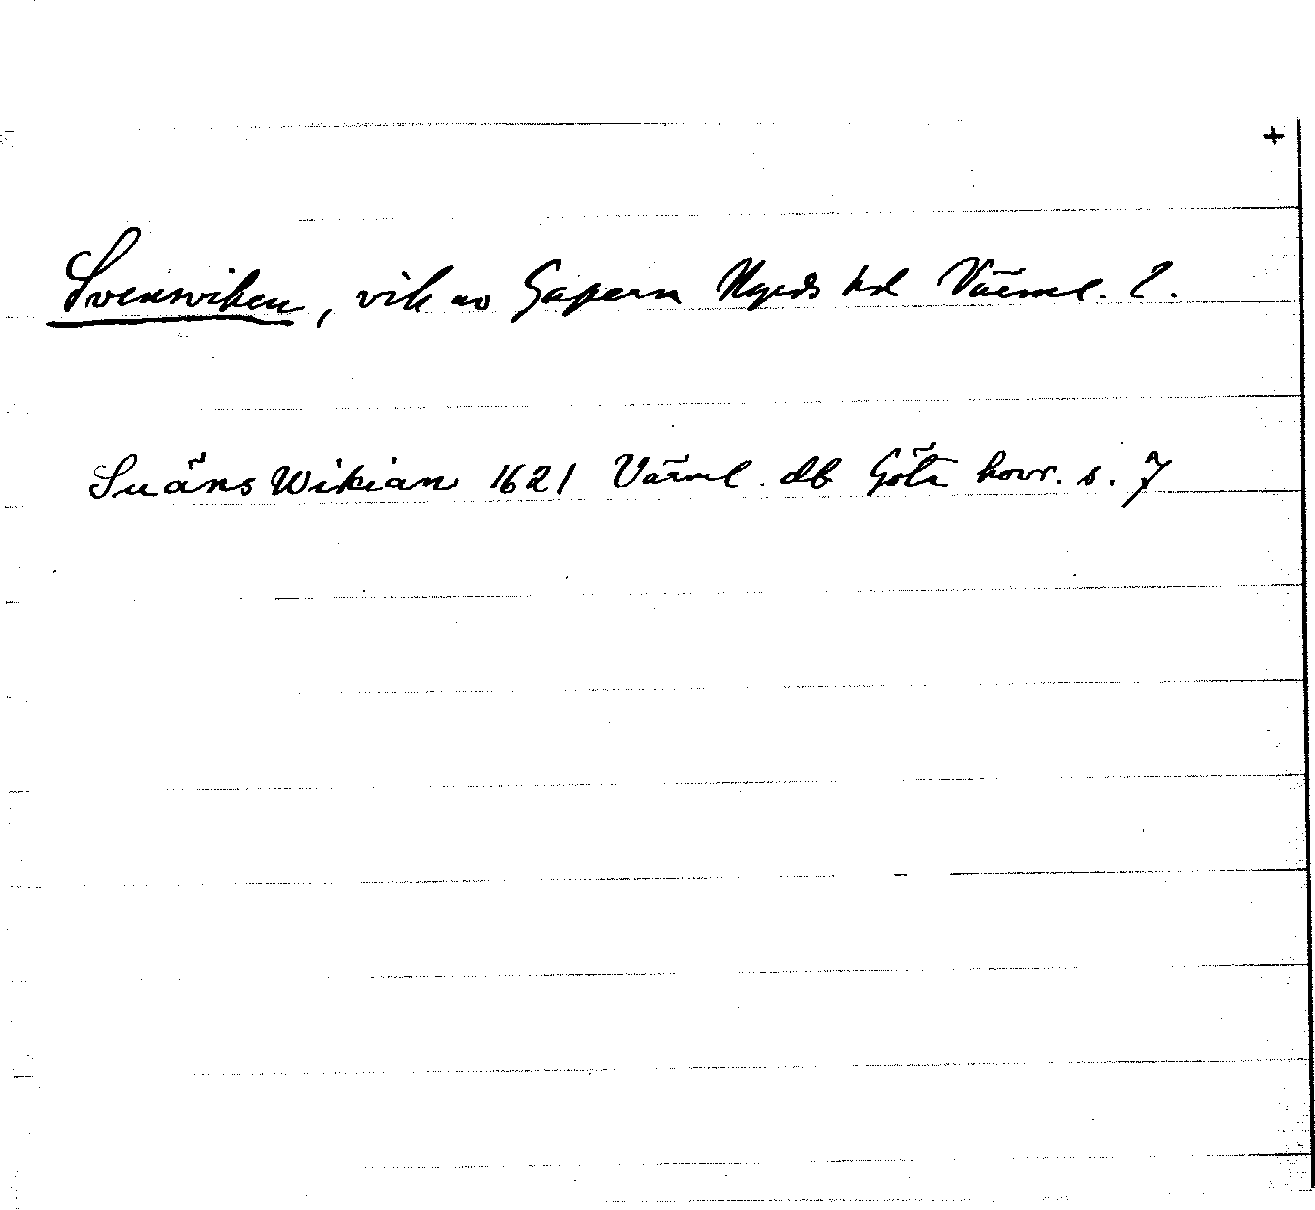 +
Svensviken, vik av Gapern Nyeds hd Värml. l.
Suäns Wikian 1621 Värml. db Göta hovr. s. 7